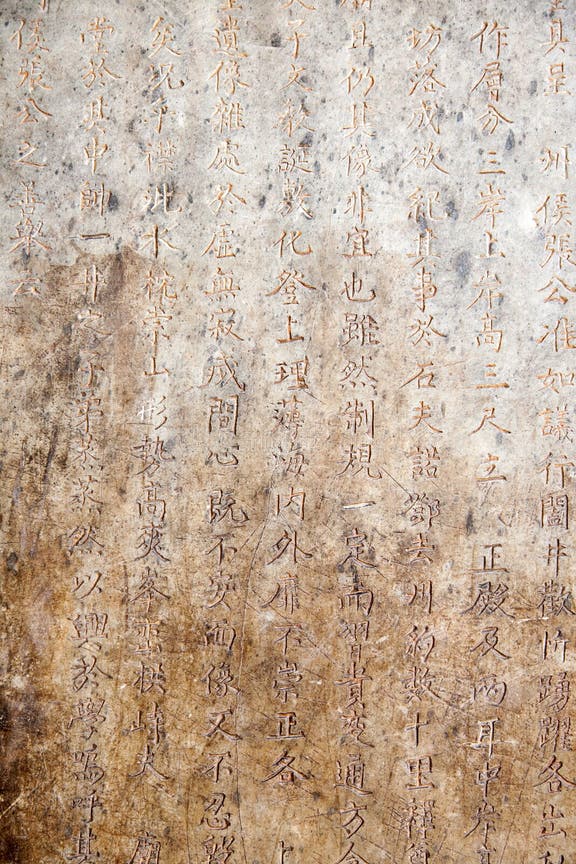 具呈 州侯張公准如議行闔井歡忻踴躍各出
作層分三岸上岸高三尺 正殿及兩耳中岸
坊落成欲紀其事於石夫詔鄧去州約數十里
且仍其像非宜也雖然制規一定而習貴變通方今
天子文教誕敷化登上理薄海内外靡不崇正各
遺像雜處於虛無寂滅間心既不安而像又不忍毀
矣况爭襟 水枕崇山形勢高爽峯巒拱峙夫 廟
堂於其中帥一井之子弟蒸蒸然以興於學嗚呼其
侯張公之善舉云